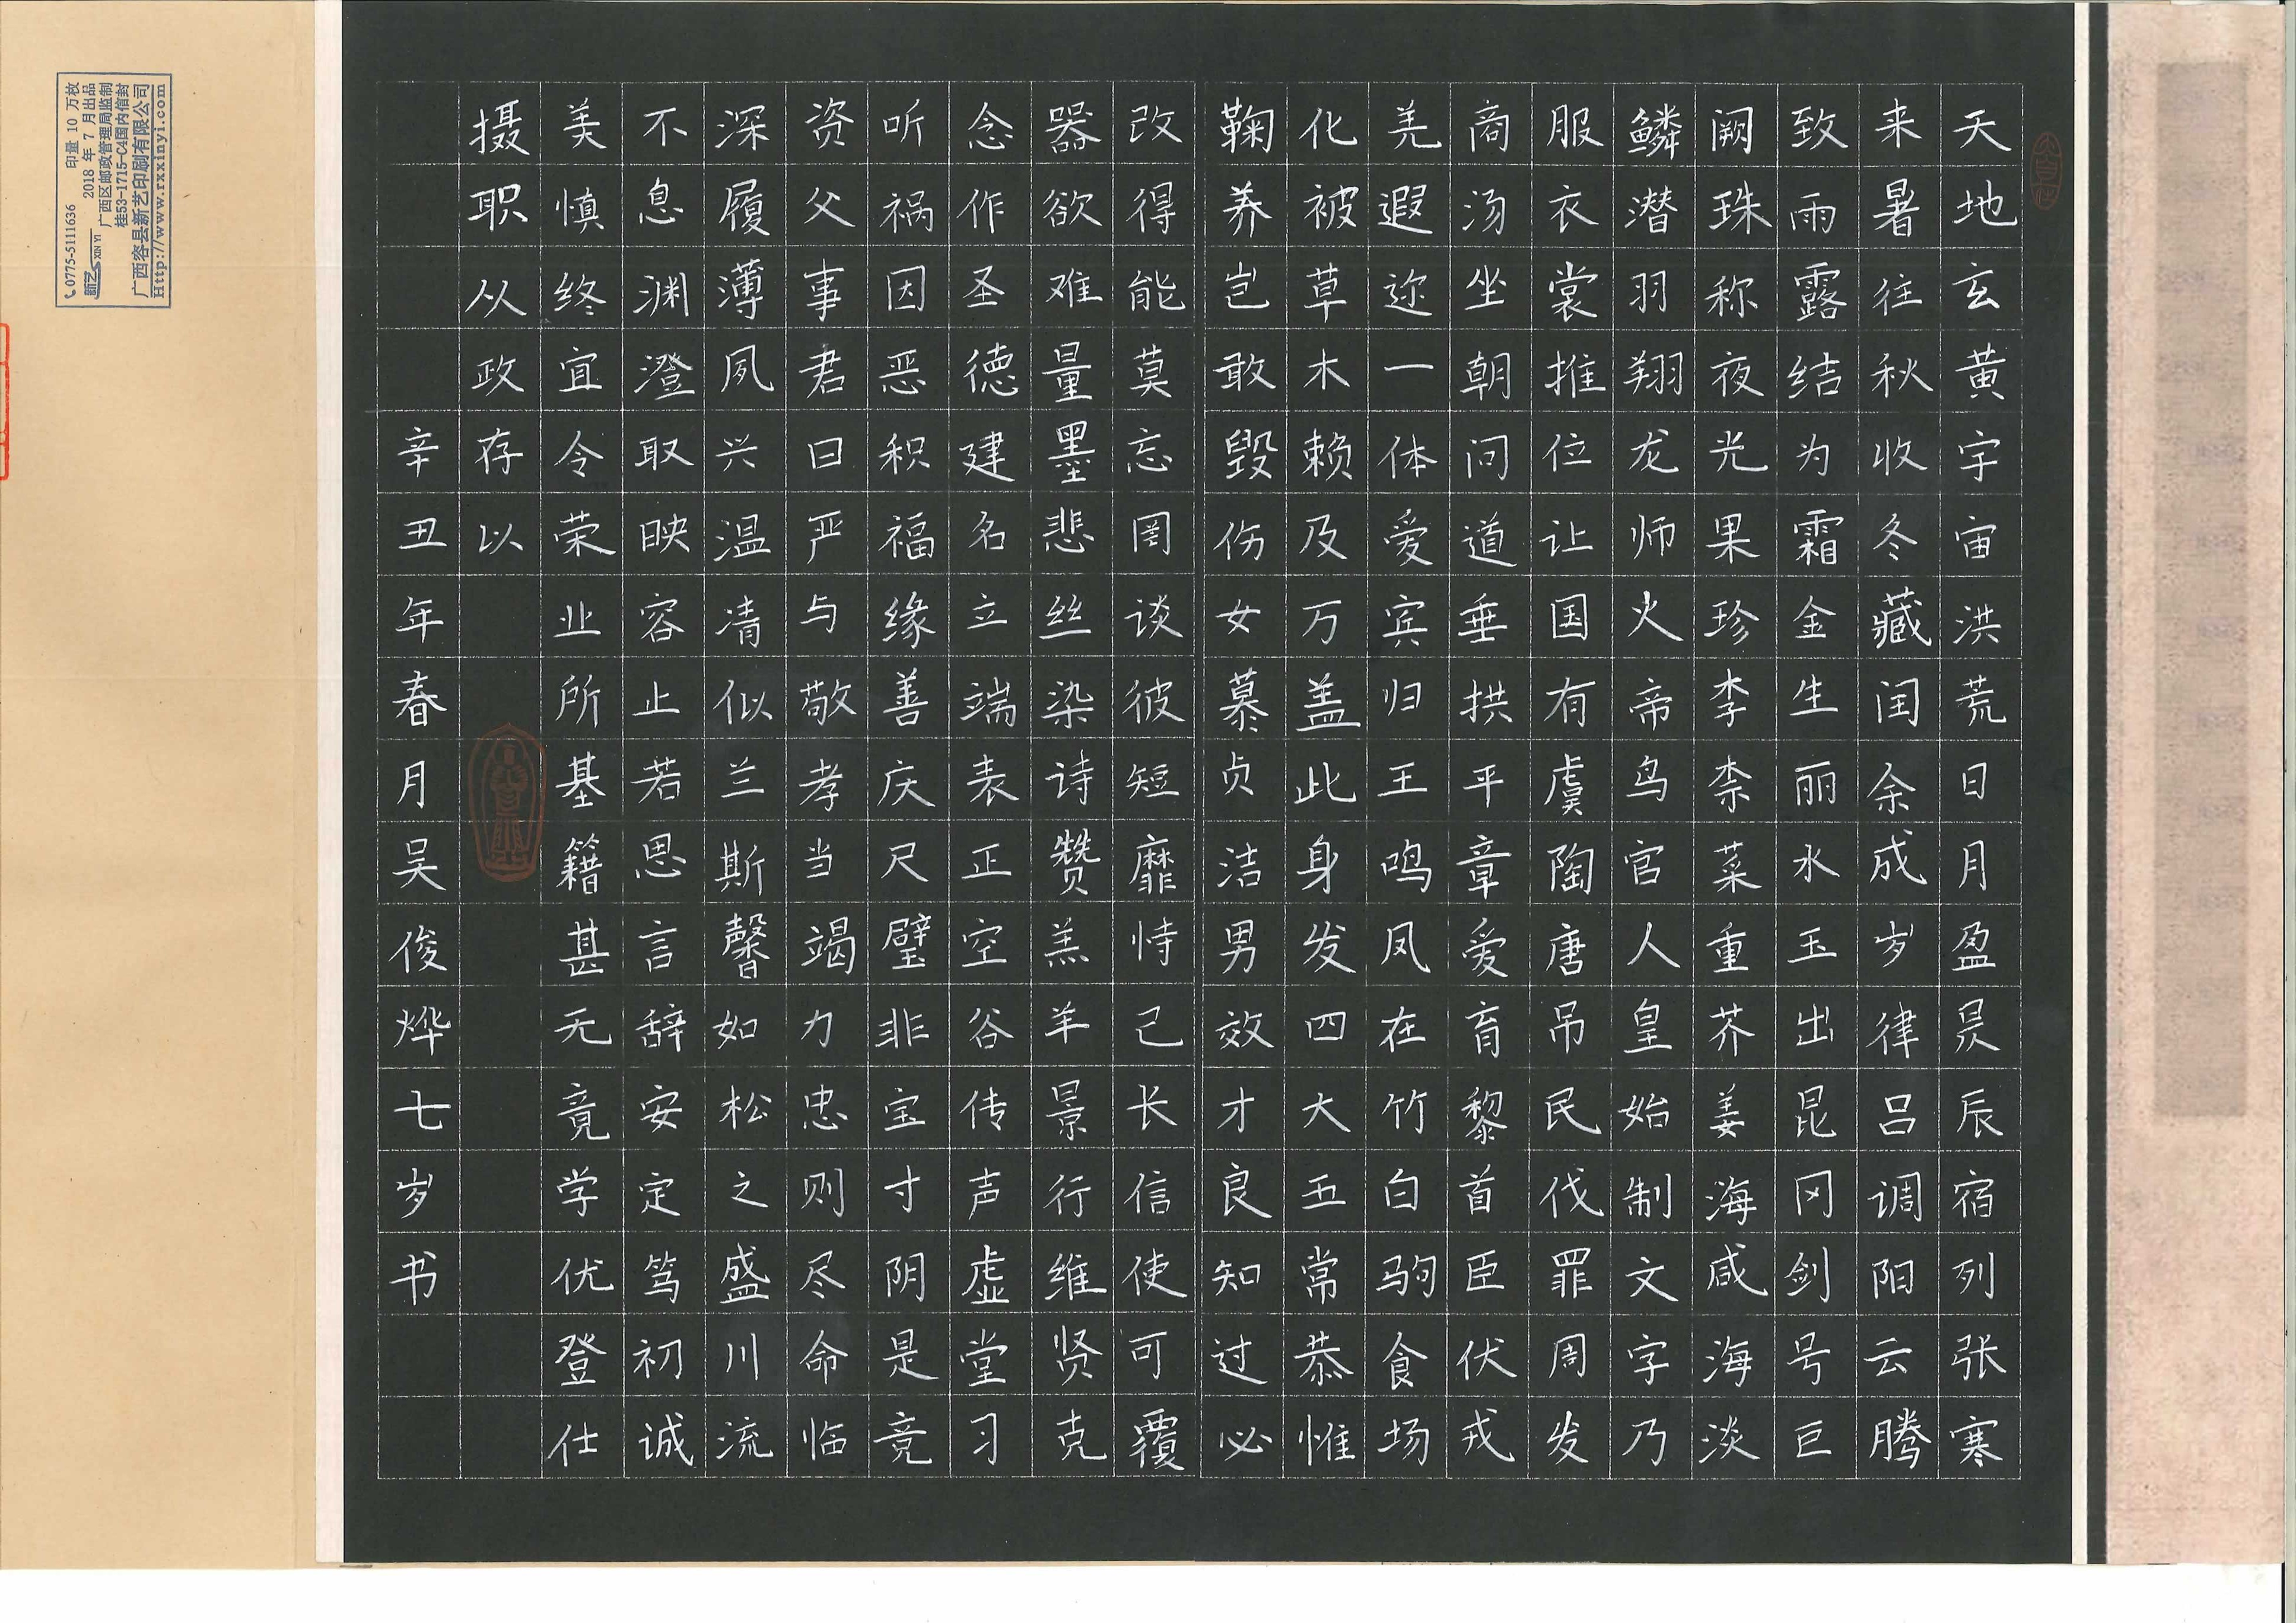 天地玄黄宇宙洪荒日月盈昃辰宿列张寒
来暑往秋收冬藏闰余成岁律吕调阳云腾
致雨露结为霜金生丽水玉出昆冈剑号巨
阙珠称夜光果珍李柰菜重芥姜海咸海淡
鳞潜羽翔龙师火帝鸟官人皇始制文字乃
服衣裳推位让国有虞陶唐吊民伐罪周发
商汤坐朝问道垂拱平章爱育黎首臣伏戎
羌遐迩一体爱宾归王鸣凤在竹白驹食场
化被草木赖及万盖此身发四大五常恭惟
鞠养岂敢毁伤女慕贞洁男效才良知过必
改得能莫忘罔谈彼短靡恃己长信使可覆
器欲难量墨悲丝染诗赞羔羊景行维贤克
念作圣德建名立端表正空谷传声虚堂习
听祸因恶积福缘善庆尺璧非宝寸阴是竞
资父事君曰严与敬孝当竭力忠则尽命临
深履薄夙兴温凊似兰斯馨如松之盛川流
不息渊澄取映容止若思言辞安定笃初诚
美慎终宜令荣业所基籍甚无竟学优登仕
摄职从政存以
辛丑年春月吴俊烨七岁书
0775-5111636 印量 10 万枚
新艺 XIN YI 2018 年 7 月出品
广西区邮政管理局监制
桂53-1715-C4国内信封
广西容县新艺印刷有限公司
Http://www.rxxinyi.com